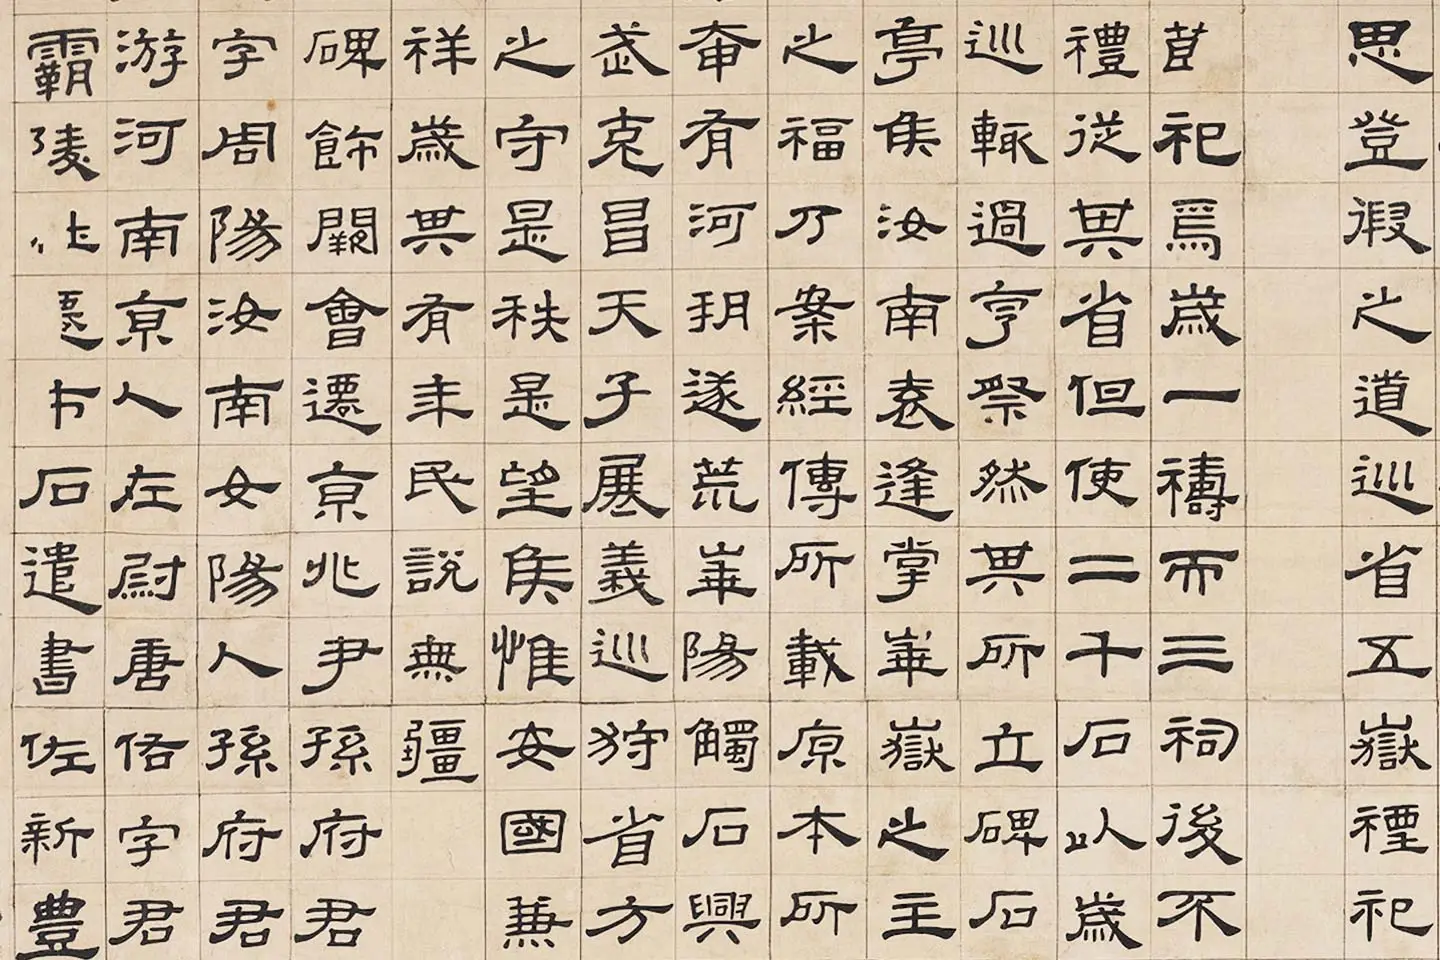 思登徦之道巡省五嶽禋祀
祀焉歲一禱而三祠後不
禮從其省但使二千石以歲
巡輒過亨祭然其所立碑石
亭矦汝南袁逢掌崋嶽之主
之福乃案經傳所載原本所
奄有河朔遂荒崋陽觸石興
武克昌天子展義巡狩省方
之守是秩是望矦惟安國兼
祥歲其有年民說無疆
碑飾闕會遷京兆尹孫府君
字周陽汝南女陽人孫府君
游河南京人左尉唐佑字君
霸陵杜遷市石遣書佐新豐